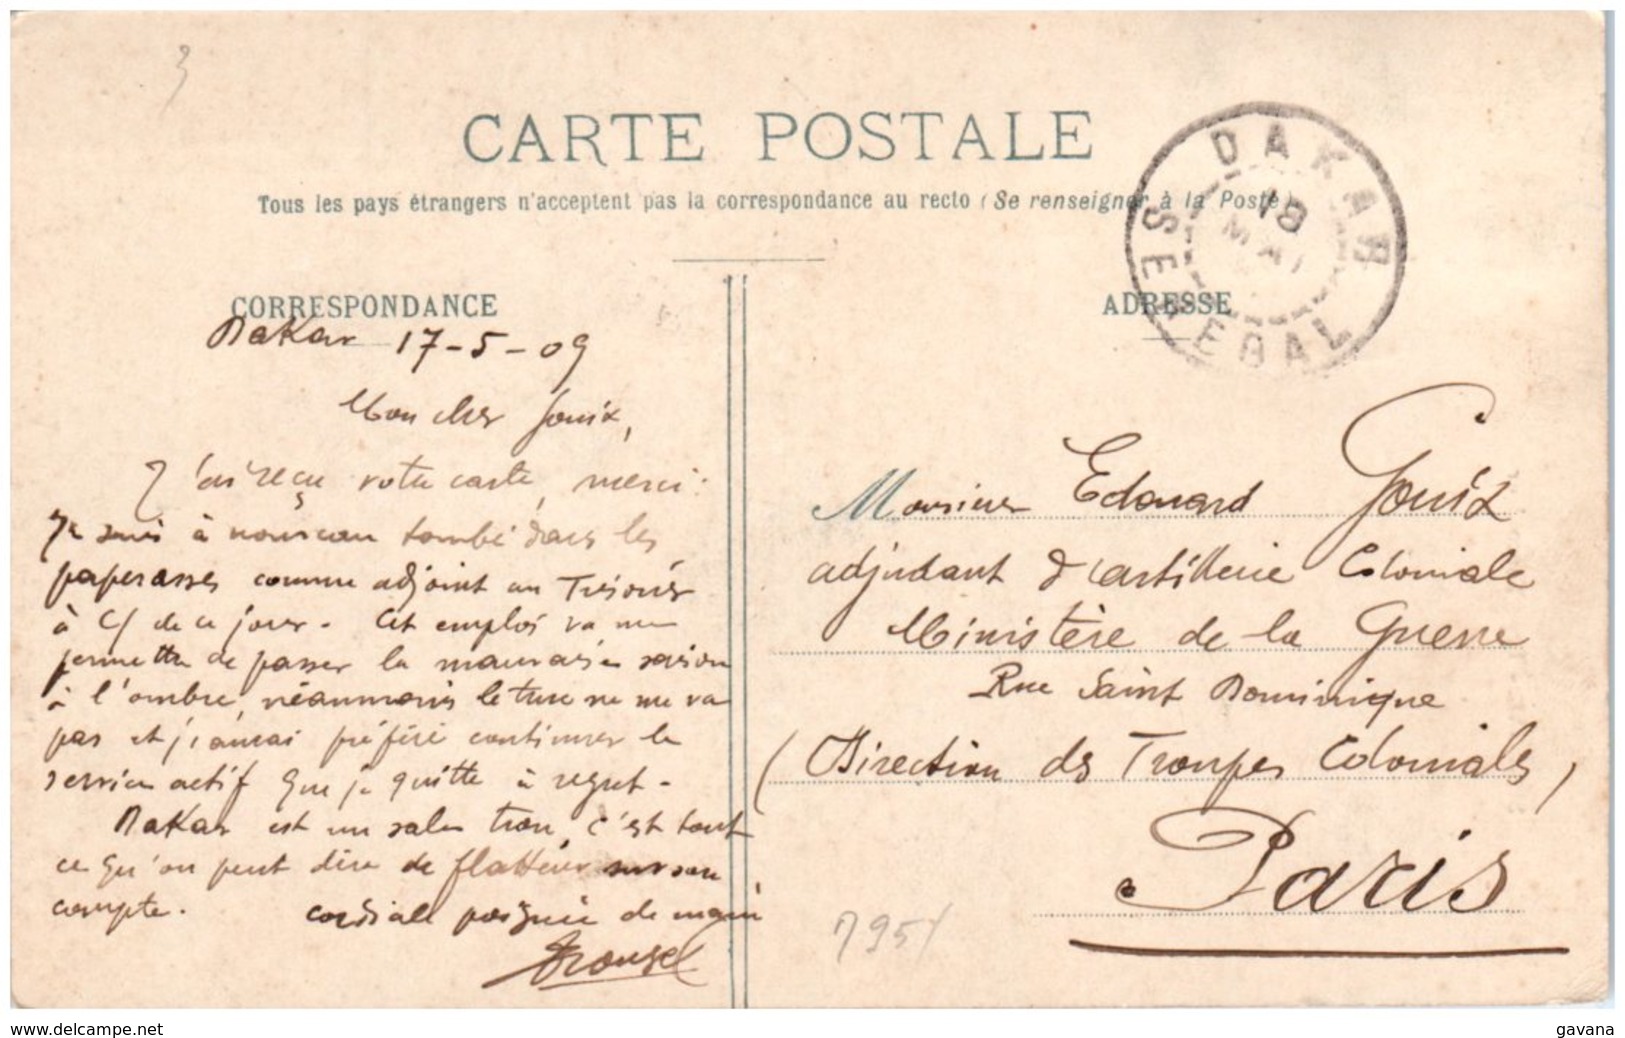 3
CARTE POSTALE
Tous les pays étrangers n'acceptent pas la correspondance au recto (Se renseigner à la Poste)
DAKAR
18
MAI
SENEGAL
CORRESPONDANCE
Dakar 17-5-09
Mon cher Gouix,
J'ai reçu votre carte, merci.
Je suis à nouveau tombé dans les
paperasses comme adjoint au Trésorier
à C/ de ce jour. Cet emploi va me
permettre de passer la mauvaise saison
à l'ombre, néanmoins le truc ne me va
pas et j'aurai préféré continuer le
service actif que je quitte à regret.
Dakar est un sale trou, c'est tout
ce qu'on peut dire de flatteur sur son
compte. cordiale poignée de main
ADRESSE
Monsieur Edouard Gouix
adjudant d'artillerie Coloniale
Ministère de la Guerre
Rue Saint Dominique
(Direction des Troupes Coloniales)
Paris
www.delcampe.net
gavana